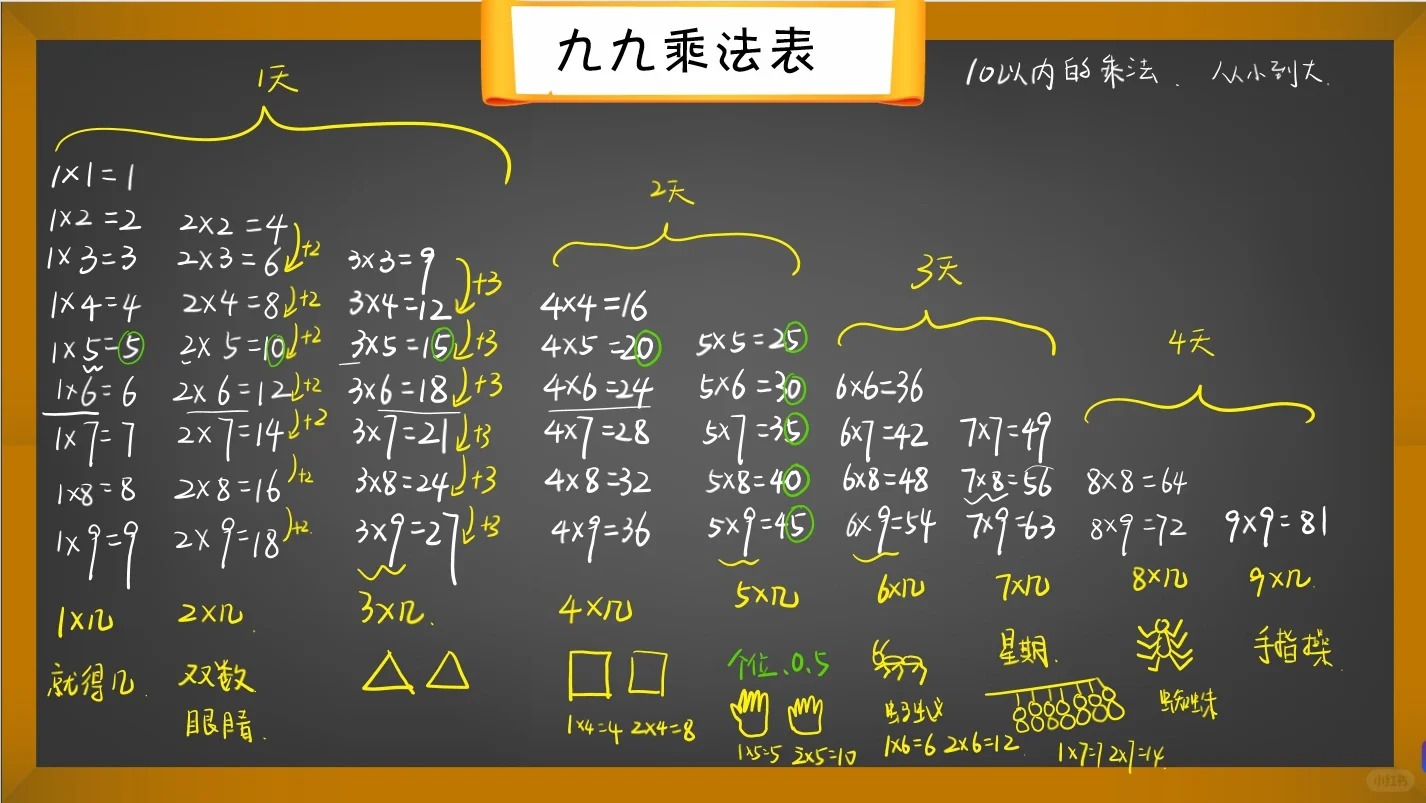 九九乘法表
10以内的乘法、从小到大.
1天
1×1=1
1×2=2 2×2=4 +2
2天
1×3=3 2×3=6 3×3=9 +3
3天
1×4=4 2×4=8 +2 3×4=12 4×4=16
1×5=5 2×5=10 +2 3×5=15 +3 4×5=20 5×5=25
4天
1×6=6 2×6=12 +2 3×6=18 +3 4×6=24 5×6=30 6×6=36
1×7=7 2×7=14 +2 3×7=21 +3 4×7=28 5×7=35 6×7=42 7×7=49
1×8=8 2×8=16 +2 3×8=24 +3 4×8=32 5×8=40 6×8=48 7×8=56 8×8=64
1×9=9 2×9=18 +2 3×9=27 +3 4×9=36 5×9=45 6×9=54 7×9=63 8×9=72 9×9=81
1×几 2×几. 3×几. 4×几 5×几 6×几 7×几 8×几 9×几.
就得几. 双数 个位、0.5 星期. 手指操.
眼睛. 蜘蛛
1×4=4 2×4=8 1×5=5 2×5=10 1×6=6 2×6=12 1×7=7 2×7=14
小红书